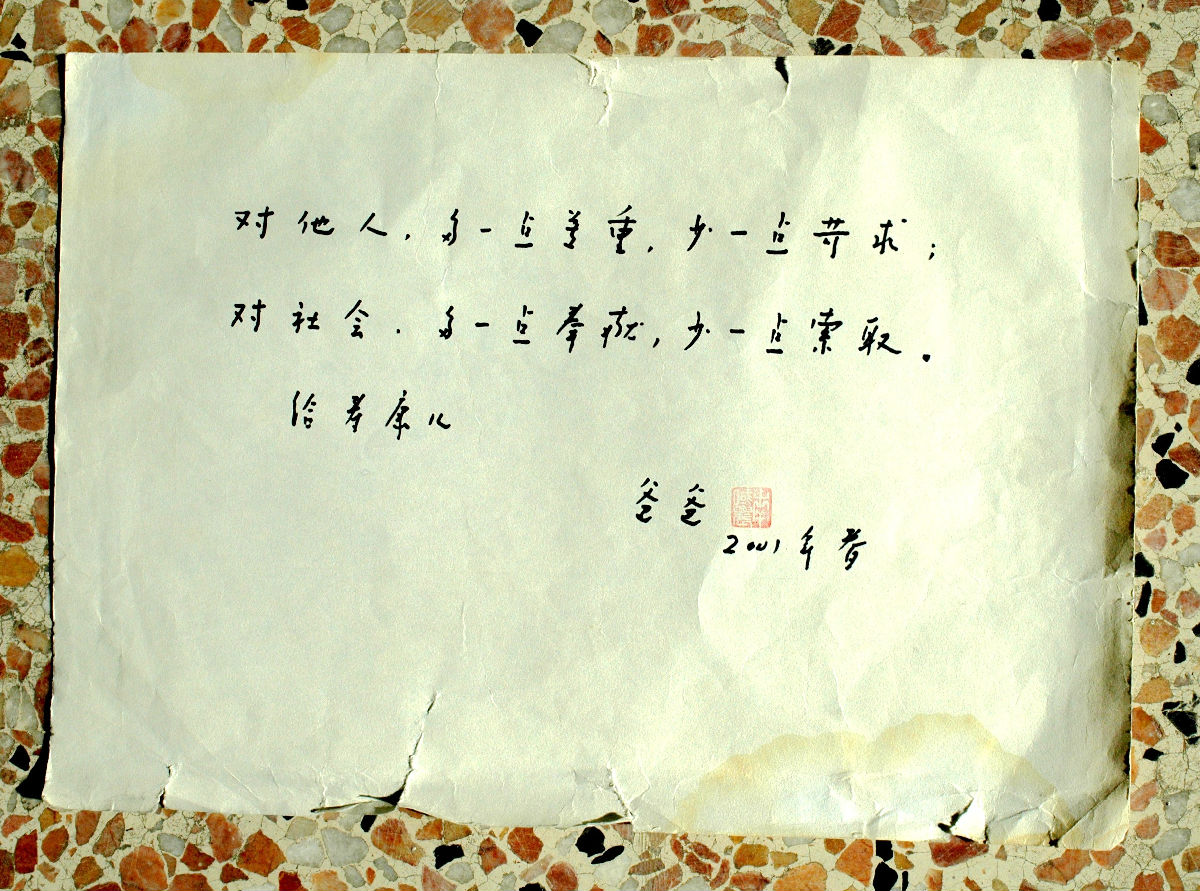 对他人，多一点尊重，少一点苛求；
对社会，多一点奉献，少一点索取。
给春康儿
爸爸
2001年春